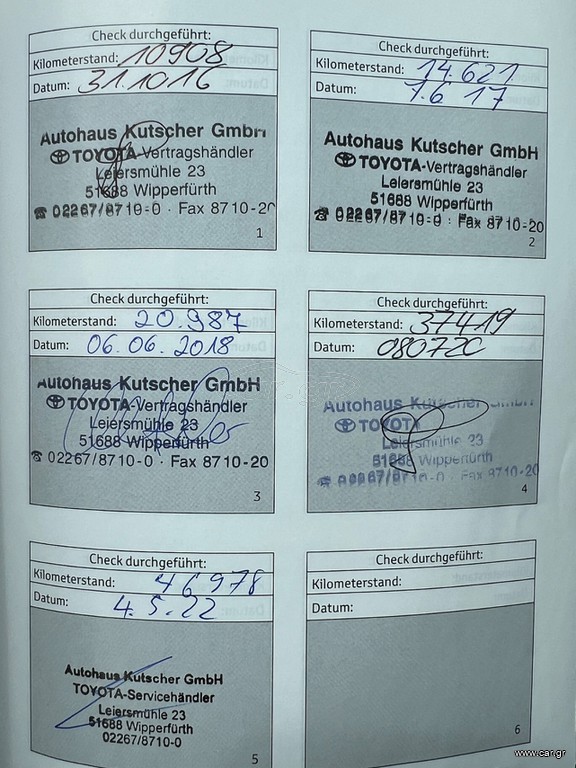 Check durchgeführt:
Kilometerstand: 10908
Datum: 31.10 16
Autohaus Kutscher GmbH
TOYOTA-Vertragshändler
Leiersmühle 23
51688 Wipperfürth
☎ 02267/8710-0 · Fax 8710-20
1
Check durchgeführt:
Kilometerstand: 14.621
Datum: 7.6 17
Autohaus Kutscher GmbH
TOYOTA-Vertragshändler
Leiersmühle 23
51688 Wipperfürth
☎ 02267/8710-0 · Fax 8710-20
2
Check durchgeführt:
Kilometerstand: 20.987
Datum: 06.06.2018
Autohaus Kutscher GmbH
TOYOTA-Vertragshändler
Leiersmühle 23
51688 Wipperfürth
☎ 02267/8710-0 · Fax 8710-20
3
Check durchgeführt:
Kilometerstand: 37419
Datum: 080720
Autohaus Kutscher GmbH
TOYOTA
Leiersmühle 23
51688 Wipperfürth
☎ 02267/8710-0 · Fax 8710-20
4
Check durchgeführt:
Kilometerstand: 46978
Datum: 4.5.22
Autohaus Kutscher GmbH
TOYOTA-Servicehändler
Leiersmühle 23
51688 Wipperfürth
02267/8710-0
5
Check durchgeführt:
Kilometerstand:
Datum:
6
www.car.gr